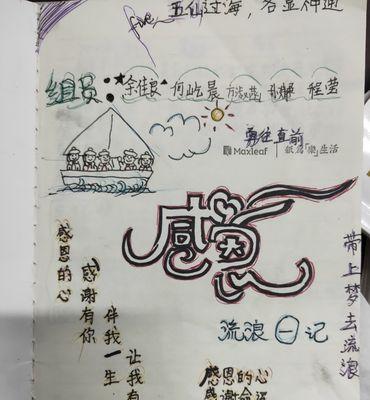 五仙过海，各显神通
组员：余佳良 何屹晨 程莹
勇往直前
Maxleaf 紙為「樂」生活
感恩
流浪一记
带上梦去流浪
感恩的心
感谢有你
伴我一生
让我有
感恩的心
感谢命运